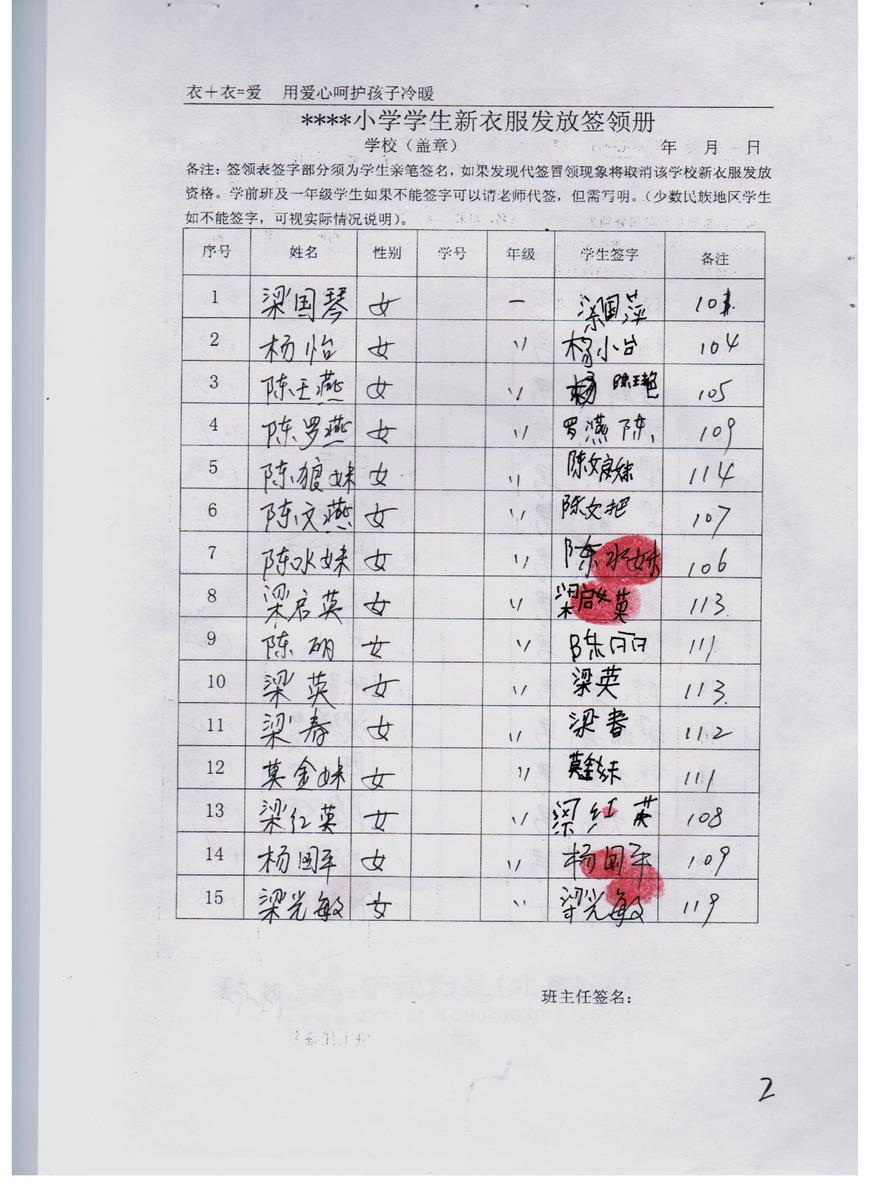 衣+衣=爱 用爱心呵护孩子冷暖
****小学学生新衣服发放签领册
学校（盖章） 年 月 日
备注：签领表签字部分须为学生亲笔签名，如果发现代签冒领现象将取消该学校新衣服发放
资格。学前班及一年级学生如果不能签字可以请老师代签，但需写明。（少数民族地区学生
如不能签字，可视实际情况说明）。
序号 姓名 性别 学号 年级 学生签字 备注
1 梁国琴 女 一 梁国萍
2 杨怡 女 〃 杨小台 104
3 陈王燕 女 〃 105
4 陈罗燕 女 〃 罗燕陈 109
5 陈娘妹 女 〃 114
6 陈文燕 女 〃 陈文把 107
7 陈水妹 女 〃 陈水妹 106
8 梁启英 女 〃 113.
9 陈 女 〃 陈丽 111
10 梁英 女 〃 梁英 113.
11 梁春 女 〃 梁春 112
12 莫金妹 女 〃 莫金妹 111
13 梁红英 女 〃 梁红英 108
14 杨国平 女 〃 杨国平 109
15 梁光敏 女 〃 梁光敏 119
班主任签名：
2